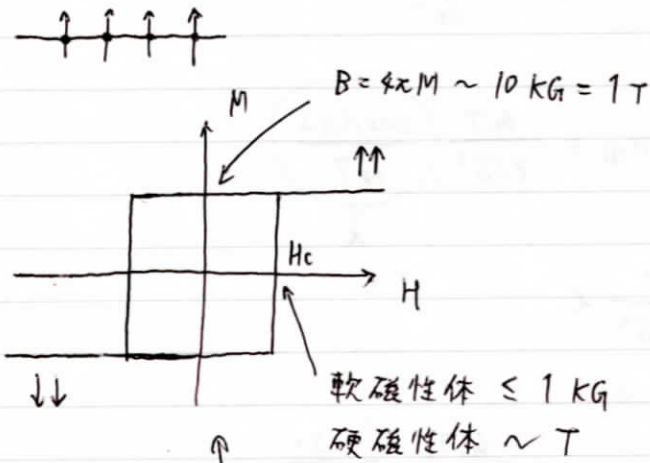 B = 4πM ~ 10 KG = 1 T
M
↑↑
Hc
H
↓↓
軟磁性体 ≤ 1 KG
硬磁性体 ~ T